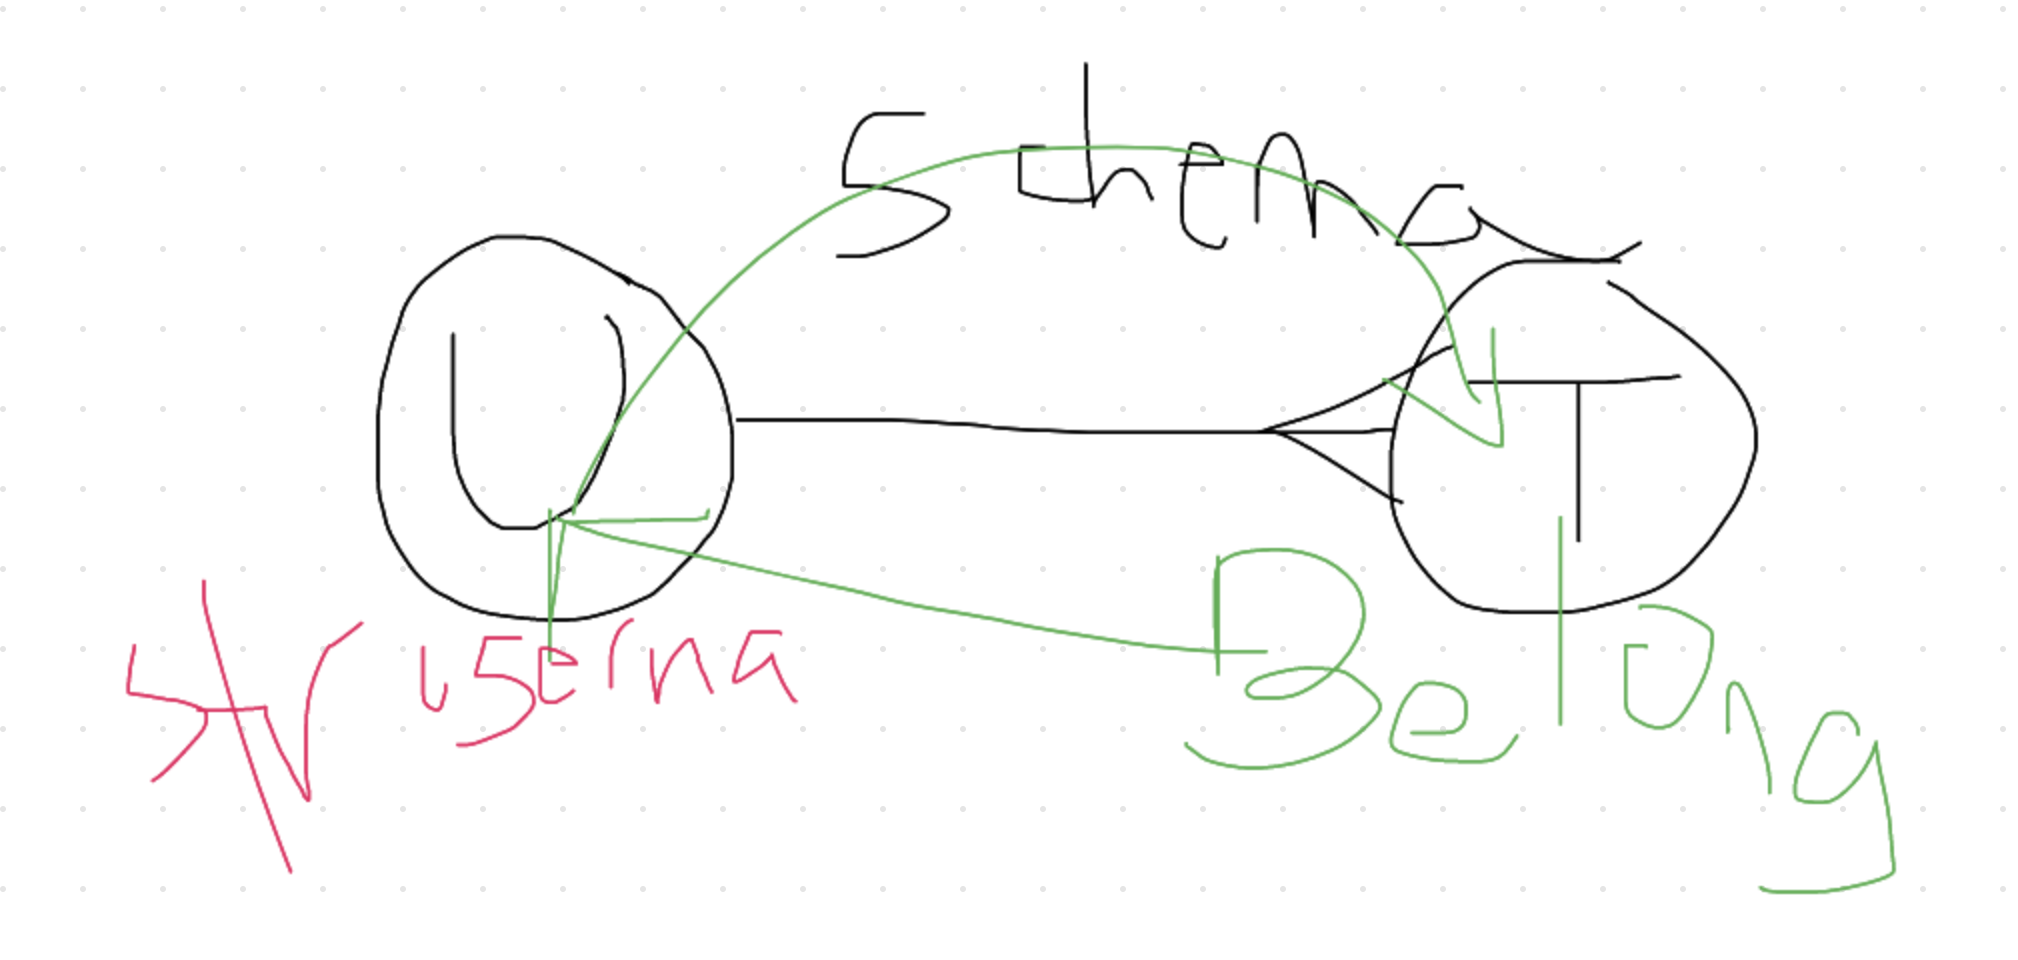 Schema
U T
userna
Belong